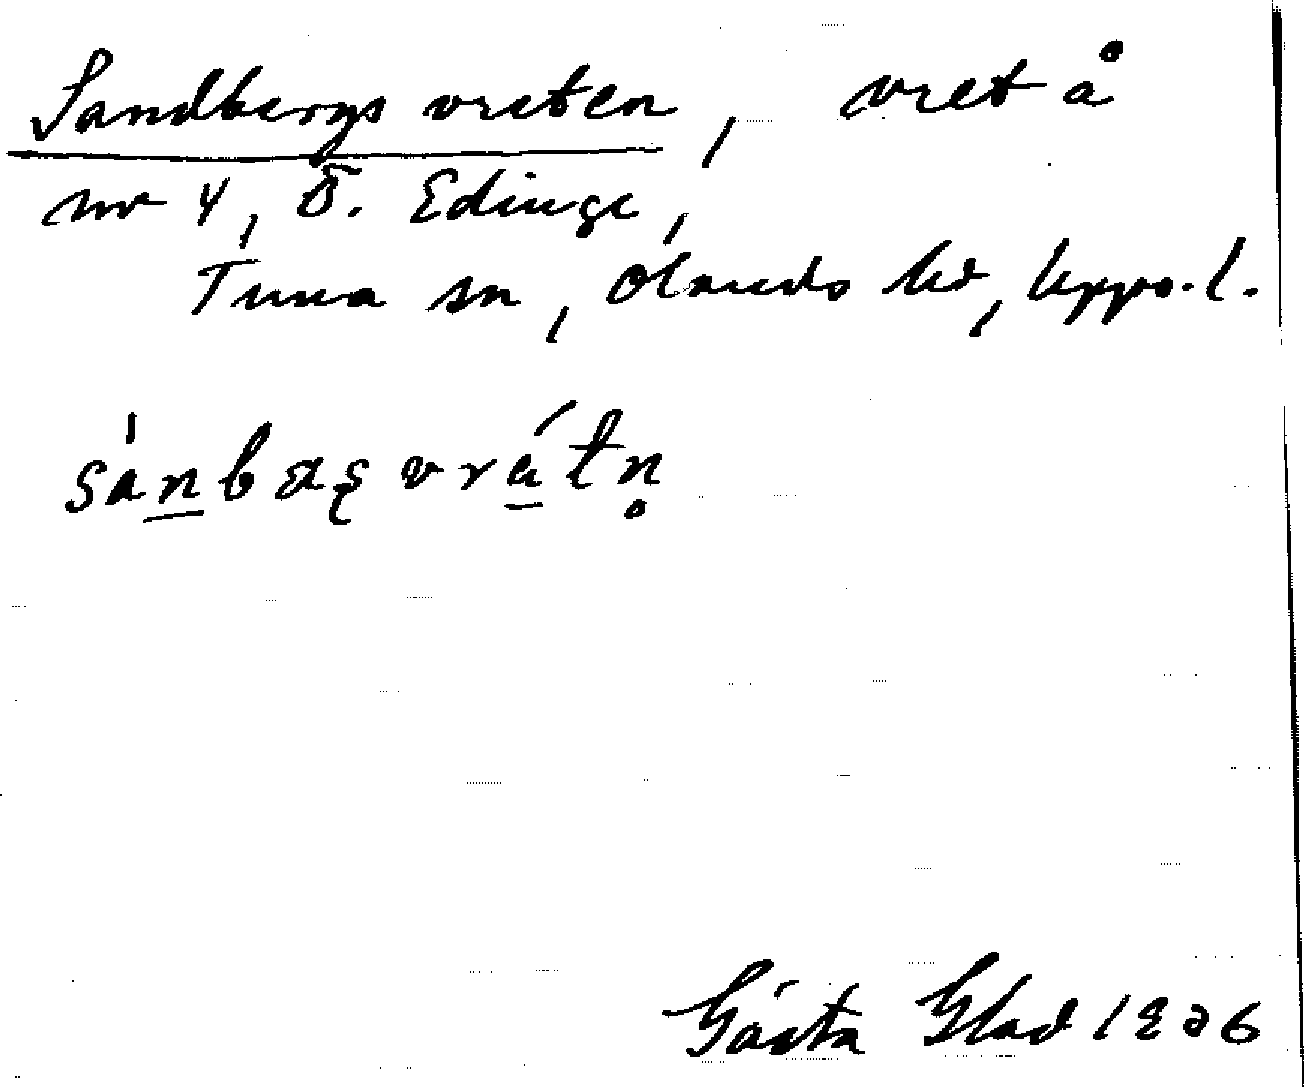 Sandbergs vreten, vret å
nr 4, Ö. Edinge,
Tuna sn, Olands hd, Upps. l.
sánbæșvrátn̥
Gösta Glad